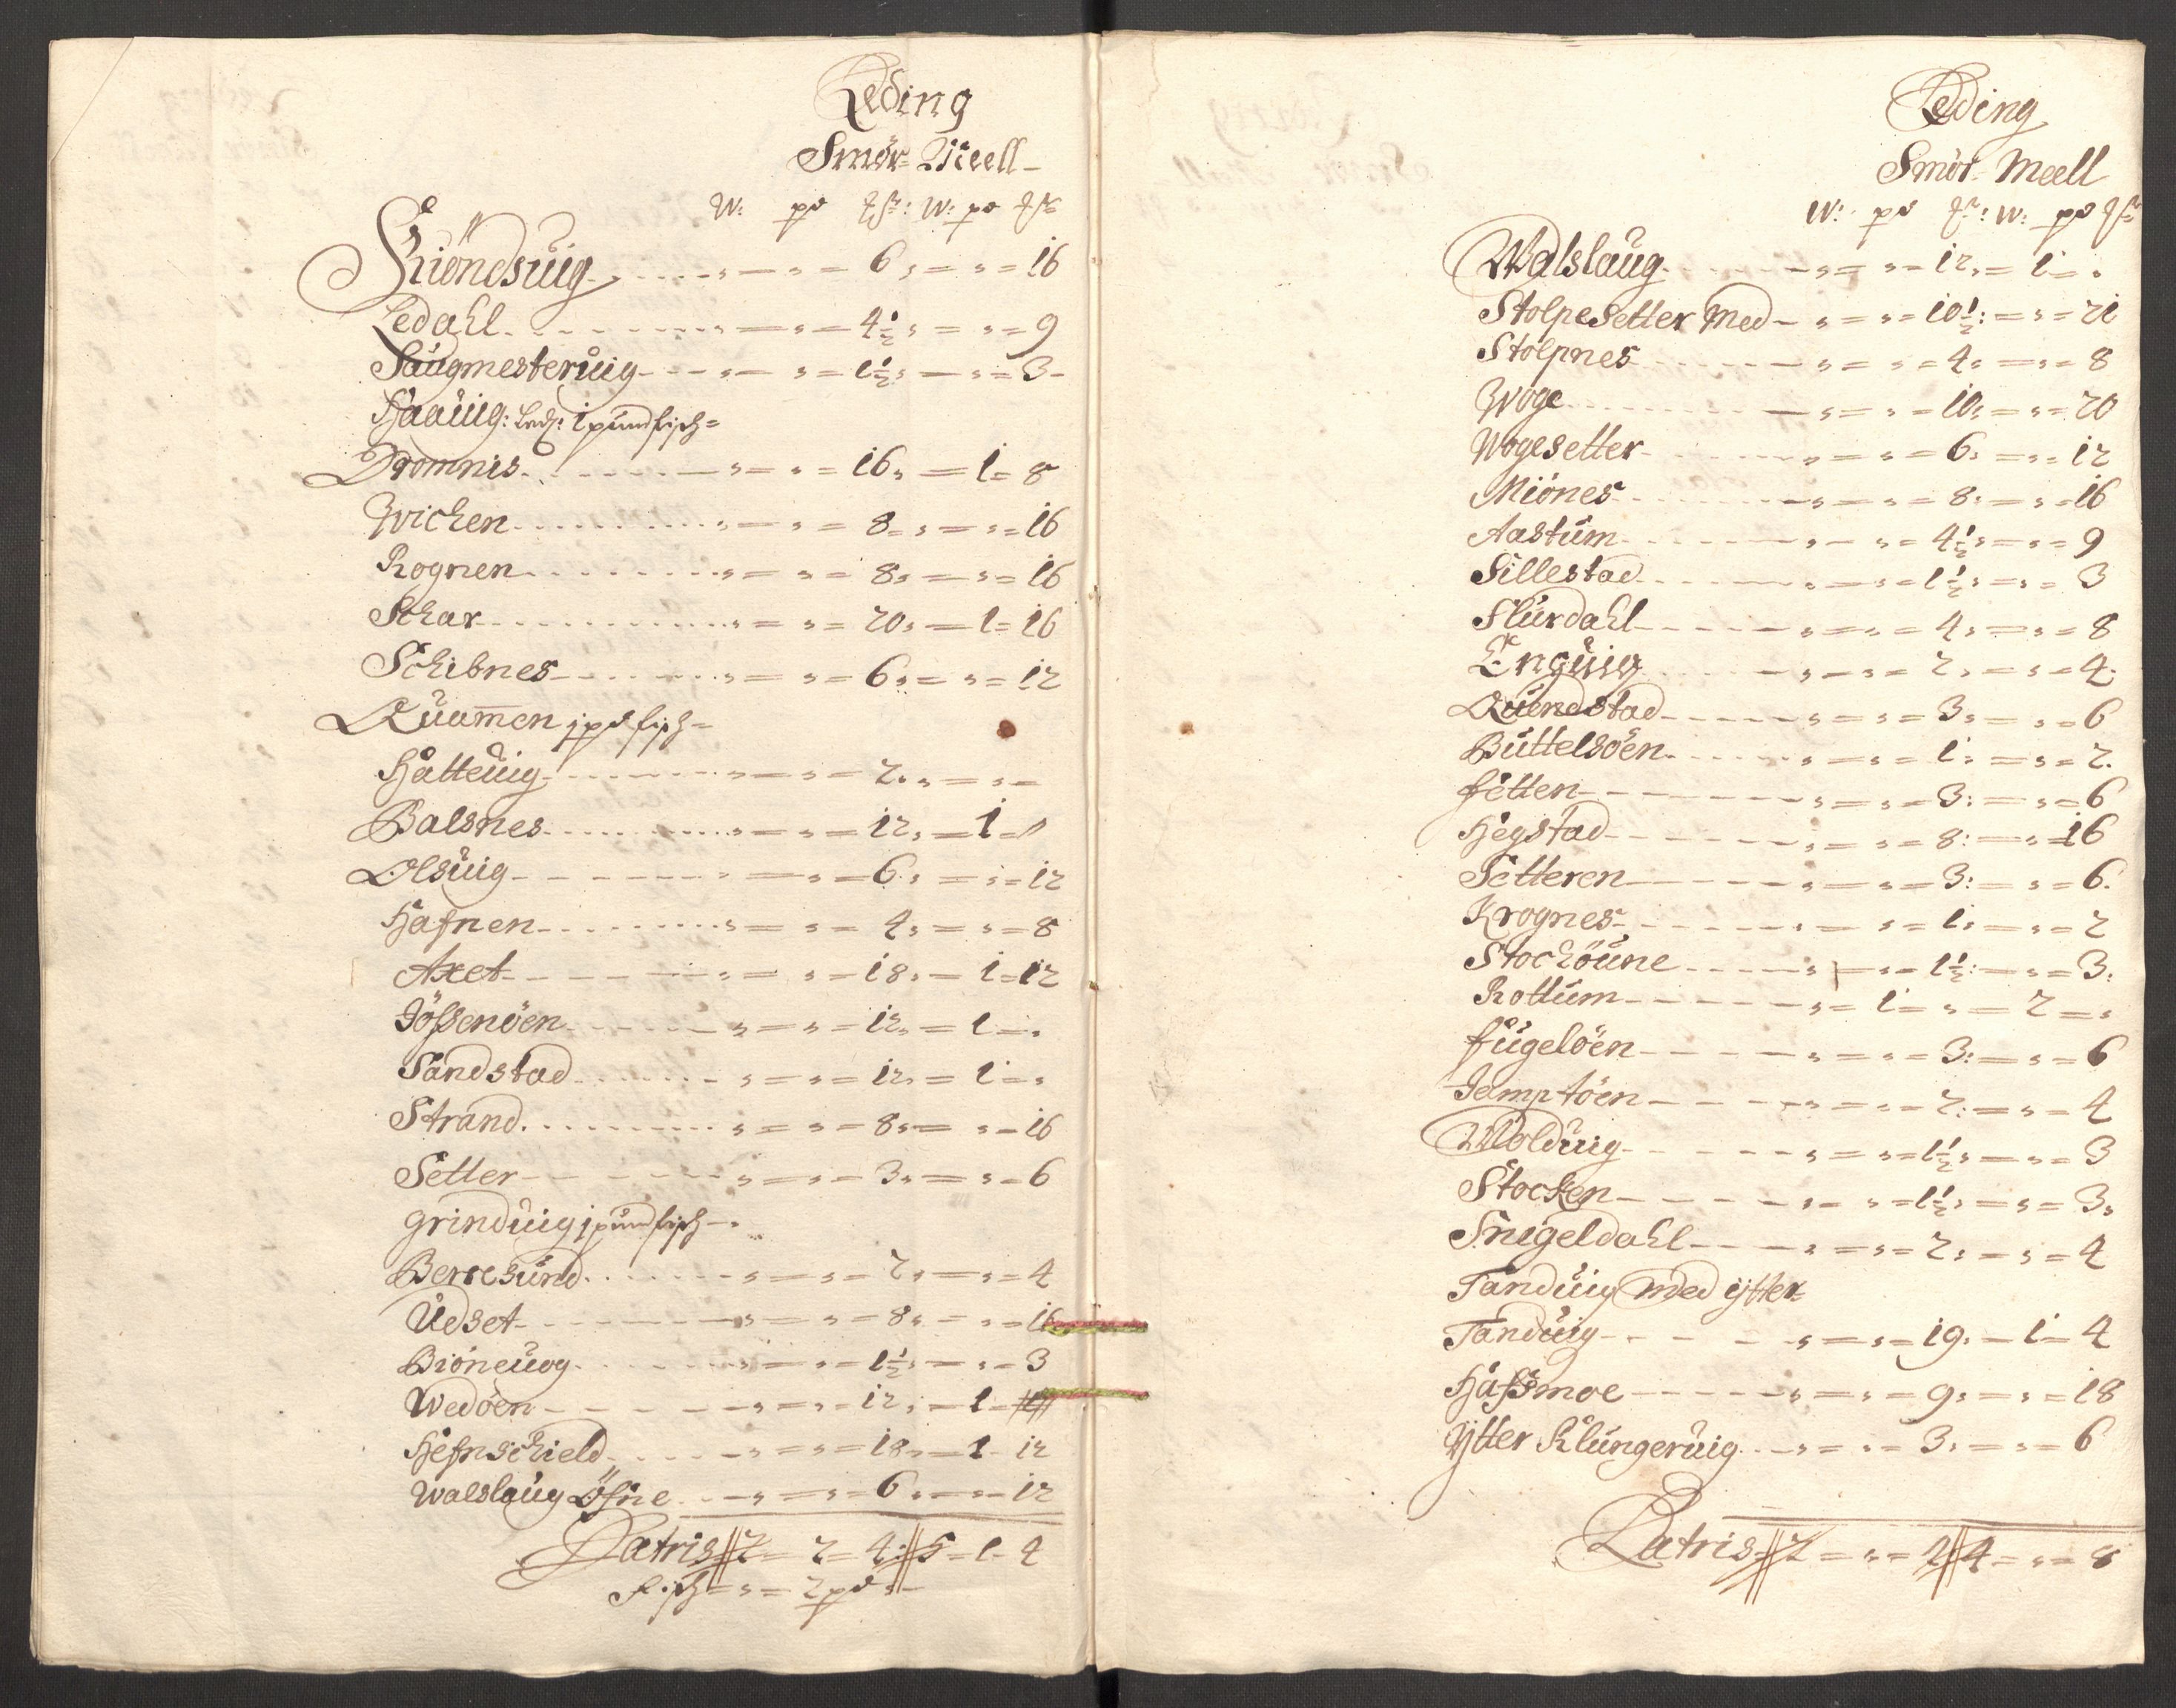 Leding
Smör- Meell-
W: pd ℔: W: pd ℔
Kiöndsuig ,, = ,, = 6 ,, = ,, = 16
Ledahl ,, = ,, = 4½ ,, = ,, = 9
Saugmesteruig ,, = ,, = 1½ ,, = ,, = 3-
Haauig: Led: 1 pund fisch=
Dromnis ,, = ,, = 16 ,, = 1 = 8
Wichen ,, = ,, = 8 ,, = ,, = 16
Rognen ,, = ,, = 8 ,, = ,, = 16
Schar ,, = ,, = 20 ,, = 1 = 16
Schibnes ,, = ,, = 6 ,, = ,, = 12
Quamen j pd fisch=
Hatteuig ,, = ,, = 2 ,, = ,, =
Balsnes ,, = ,, = 12 ,, = 1 = ,,
Olsuig ,, = ,, = 6 ,, = ,, = 12
Hafnen ,, = ,, = 4 ,, = ,, = 8
Axet ,, = ,, = 18 ,, = 1 = 12
Jössenöen ,, = ,, = 12 ,, = 1 = ,,
Sandstad ,, = ,, = 12 ,, = 1 = ,,
Strand ,, = ,, = 8 ,, = ,, = 16
Setter ,, = ,, = 3 ,, = ,, = 6
Grinduig j pund fisch-
Berresund ,, = ,, = 2 ,, = ,, = 4
Udset ,, = ,, = 8 ,, = ,, = 16
Biöneuog ,, = ,, = 1½ ,, = ,, = 3
Wedöen ,, = ,, = 12 ,, = 1
Hefnschield ,, = ,, = 18 ,, = 1 = 12
Walslaug Öfne ,, = ,, = 6 ,, = ,, = 12
Latris 2 = 2 = 4 : 5 = 1 = 4
Fisch = ,, = 2 pd ,, =
Leding
Smör- Meell
W: pd ℔: W: pd ℔
Walslaug ,, = ,, = 12 ,, = 1 = ,,
Stolpesetter med ,, = ,, = 10½ : = ,, = 21
Stolpnes ,, = ,, = 4 ,, = ,, = 8
Woge ,, = ,, = 10 ,, = ,, = 20
Wogesetter ,, = ,, = 6 ,, = ,, = 12
Miönes ,, = ,, = 8 ,, = ,, = 16
Aastum ,, = ,, = 4½ ,, = ,, = 9
Sillestad ,, = ,, = 1½ ,, = ,, = 3
Slurdahl ,, = ,, = 4 ,, = ,, = 8
Enguig ,, = ,, = 2 ,, = ,, = 4
Quendstad ,, = ,, = 3 ,, = ,, = 6
Buttelsöen ,, = ,, = 1 : = ,, = 2
Fetten ,, = ,, = 3 : = ,, = 6
Hegstad ,, = ,, = 8 : = ,, = 16
Setteren ,, = ,, = 3 : = ,, = 6
Krognes ,, = ,, = 1 ,, = ,, = 2
Stochöune ,, = ,, = 1½ : = ,, = 3
Rottum ,, = 1 = ,, = 2 = ,,
Fugelöen ,, = ,, = 3 : = ,, = 6
Jemptöen ,, = ,, = 2 : = ,, = 4
Wolduig ,, = ,, = 1½ ,, = ,, = 3
Stocken ,, = ,, = 1½ ,, = ,, = 3
Snigeldahl ,, = ,, = 2 ,, = ,, = 4
Tanduig med ytter=
Tanduig ,, = ,, = 19 ,, = 1 = 4
Hassmoe ,, = ,, = 9 ,, = ,, = 18
Ytter Klungeruig ,, = ,, = 3 ,, = ,, = 6
Latris 2 = ,, = 2 4 = ,, = 8